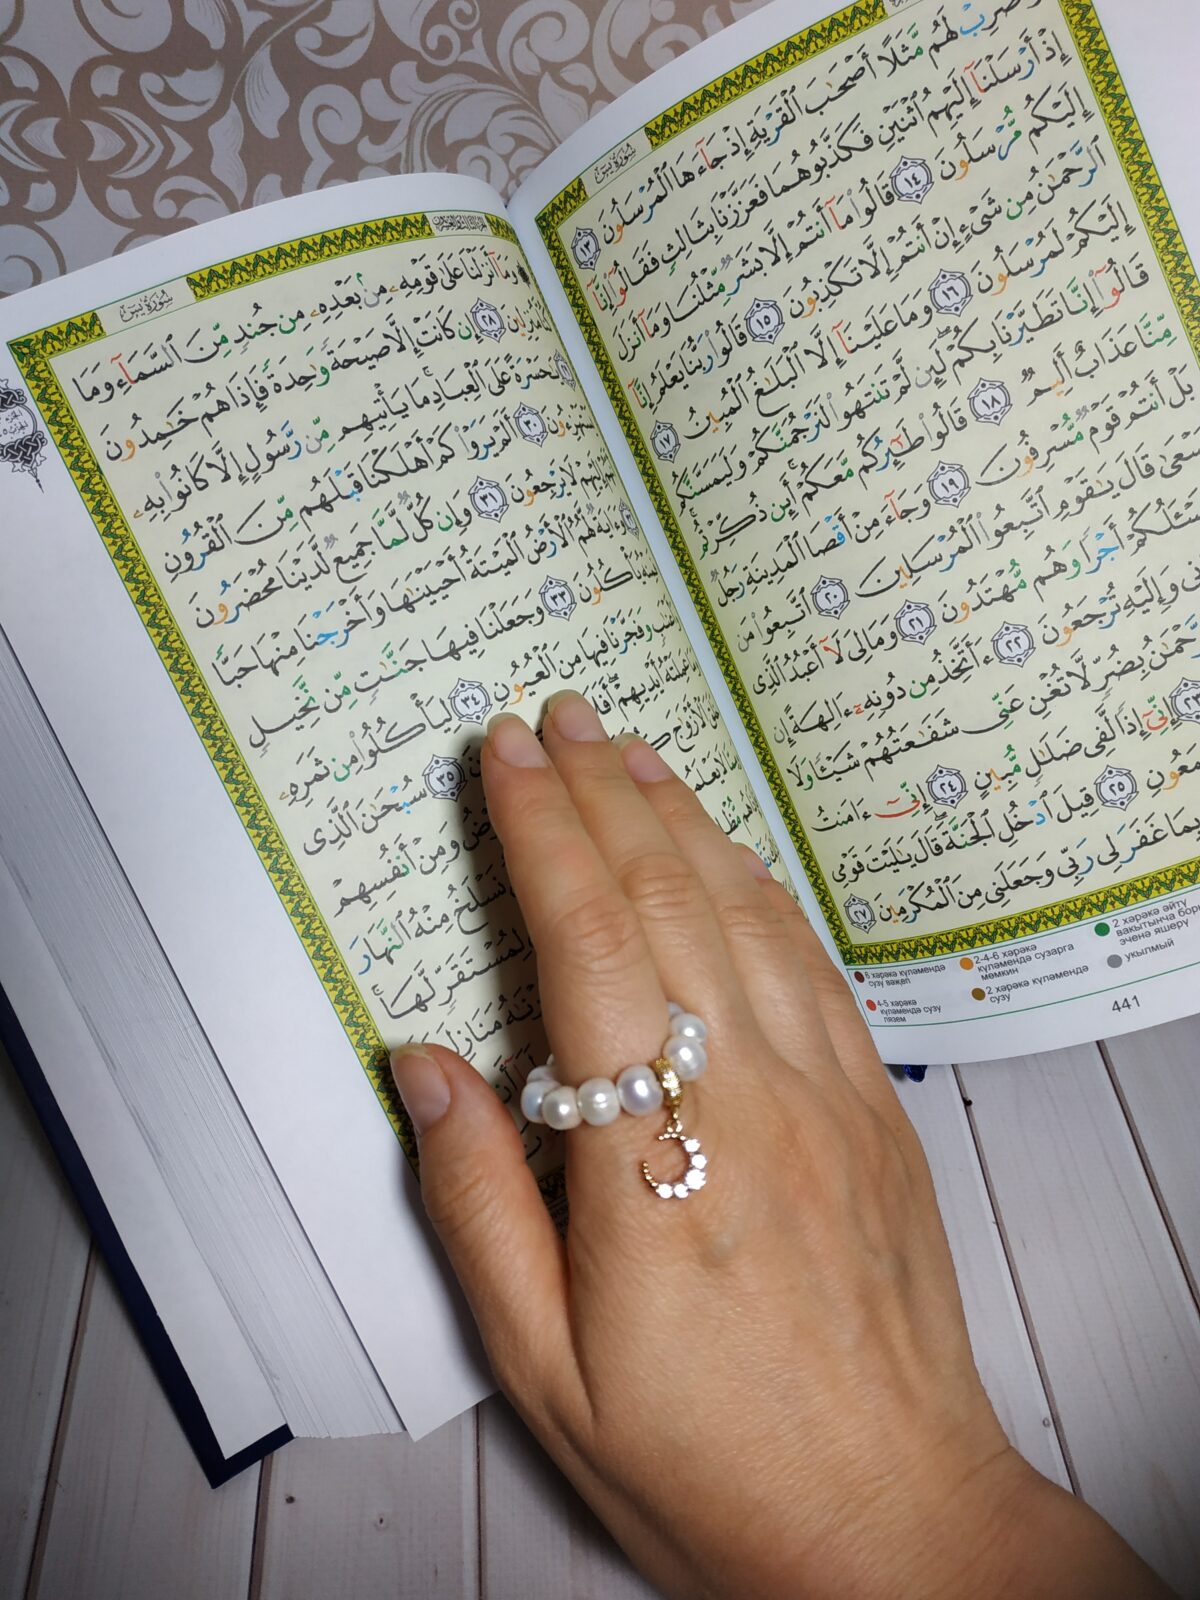 سُورَةُ يسٓ
وَٱضْرِبْ لَهُم مَّثَلًا أَصْحَٰبَ ٱلْقَرْيَةِ إِذْ جَآءَهَا ٱلْمُرْسَلُونَ ١٣
إِذْ أَرْسَلْنَآ إِلَيْهِمُ ٱثْنَيْنِ فَكَذَّبُوهُمَا فَعَزَّزْنَا بِثَالِثٍ فَقَالُوٓا۟ إِنَّآ
إِلَيْكُم مُّرْسَلُونَ ١٤ قَالُوا۟ مَآ أَنتُمْ إِلَّا بَشَرٌ مِّثْلُنَا وَمَآ أَنزَلَ
ٱلرَّحْمَٰنُ مِن شَىْءٍ إِنْ أَنتُمْ إِلَّا تَكْذِبُونَ ١٥ قَالُوا۟ رَبُّنَا يَعْلَمُ إِنَّآ
إِلَيْكُمْ لَمُرْسَلُونَ ١٦ وَمَا عَلَيْنَآ إِلَّا ٱلْبَلَٰغُ ٱلْمُبِينُ ١٧
قَالُوٓا۟ إِنَّا تَطَيَّرْنَا بِكُمْ لَئِن لَّمْ تَنتَهُوا۟ لَنَرْجُمَنَّكُمْ وَلَيَمَسَّنَّكُم
مِّنَّا عَذَابٌ أَلِيمٌ ١٨ قَالُوا۟ طَٰٓئِرُكُم مَّعَكُمْ أَئِن ذُكِّرْتُم
بَلْ أَنتُمْ قَوْمٌ مُّسْرِفُونَ ١٩ وَجَآءَ مِنْ أَقْصَا ٱلْمَدِينَةِ رَجُلٌ
يَسْعَىٰ قَالَ يَٰقَوْمِ ٱتَّبِعُوا۟ ٱلْمُرْسَلِينَ ٢٠ ٱتَّبِعُوا۟ مَن
يَسْـَٔلُكُمْ أَجْرًا وَهُم مُّهْتَدُونَ ٢١ وَمَا لِىَ لَآ أَعْبُدُ ٱلَّذِى
وَإِلَيْهِ تُرْجَعُونَ ٢٢ ءَأَتَّخِذُ مِن دُونِهِۦٓ ءَالِهَةً إِن
ٱلرَّحْمَٰنُ بِضُرٍّ لَّا تُغْنِ عَنِّى شَفَٰعَتُهُمْ شَيْـًٔا وَلَا
٢٣ إِنِّىٓ إِذًا لَّفِى ضَلَٰلٍ مُّبِينٍ ٢٤ إِنِّىٓ ءَامَنتُ
٢٥ قِيلَ ٱدْخُلِ ٱلْجَنَّةَ قَالَ يَٰلَيْتَ قَوْمِى
بِمَا غَفَرَ لِى رَبِّى وَجَعَلَنِى مِنَ ٱلْمُكْرَمِينَ ٢٧
6 хәрәкә күләмендә сузу важеб
2-4-6 хәрәкә күләмендә сузарга мөмкин
2 хәрәкә әйтү вакытынча борын эченә яшерү
4-5 хәрәкә күләмендә сузу лязем
2 хәрәкә күләмендә сузу
укылмый
441
سُورَةُ يسٓ
وَمَآ أَنزَلْنَا عَلَىٰ قَوْمِهِۦ مِنۢ بَعْدِهِۦ مِن جُندٍ مِّنَ ٱلسَّمَآءِ وَمَا
كُنَّا مُنزِلِينَ ٢٨ إِن كَانَتْ إِلَّا صَيْحَةً وَٰحِدَةً فَإِذَا هُمْ خَٰمِدُونَ
٢٩ يَٰحَسْرَةً عَلَى ٱلْعِبَادِ مَا يَأْتِيهِم مِّن رَّسُولٍ إِلَّا كَانُوا۟ بِهِۦ
يَسْتَهْزِءُونَ ٣٠ أَلَمْ يَرَوْا۟ كَمْ أَهْلَكْنَا قَبْلَهُم مِّنَ ٱلْقُرُونِ
أَنَّهُمْ إِلَيْهِمْ لَا يَرْجِعُونَ ٣١ وَإِن كُلٌّ لَّمَّا جَمِيعٌ لَّدَيْنَا مُحْضَرُونَ
وَءَايَةٌ لَّهُمُ ٱلْأَرْضُ ٱلْمَيْتَةُ أَحْيَيْنَٰهَا وَأَخْرَجْنَا مِنْهَا حَبًّا
فَمِنْهُ يَأْكُلُونَ ٣٣ وَجَعَلْنَا فِيهَا جَنَّٰتٍ مِّن نَّخِيلٍ
وَفَجَّرْنَا فِيهَا مِنَ ٱلْعُيُونِ ٣٤ لِيَأْكُلُوا۟ مِن ثَمَرِهِۦ
عَمِلَتْهُ أَيْدِيهِمْ ٣٥ سُبْحَٰنَ ٱلَّذِى
ٱلْأَزْوَٰجَ وَمِنْ أَنفُسِهِمْ
لَا يَعْلَمُونَ نَسْلَخُ مِنْهُ ٱلنَّهَارَ
لِمُسْتَقَرٍّ لَّهَا
مَنَازِلَ